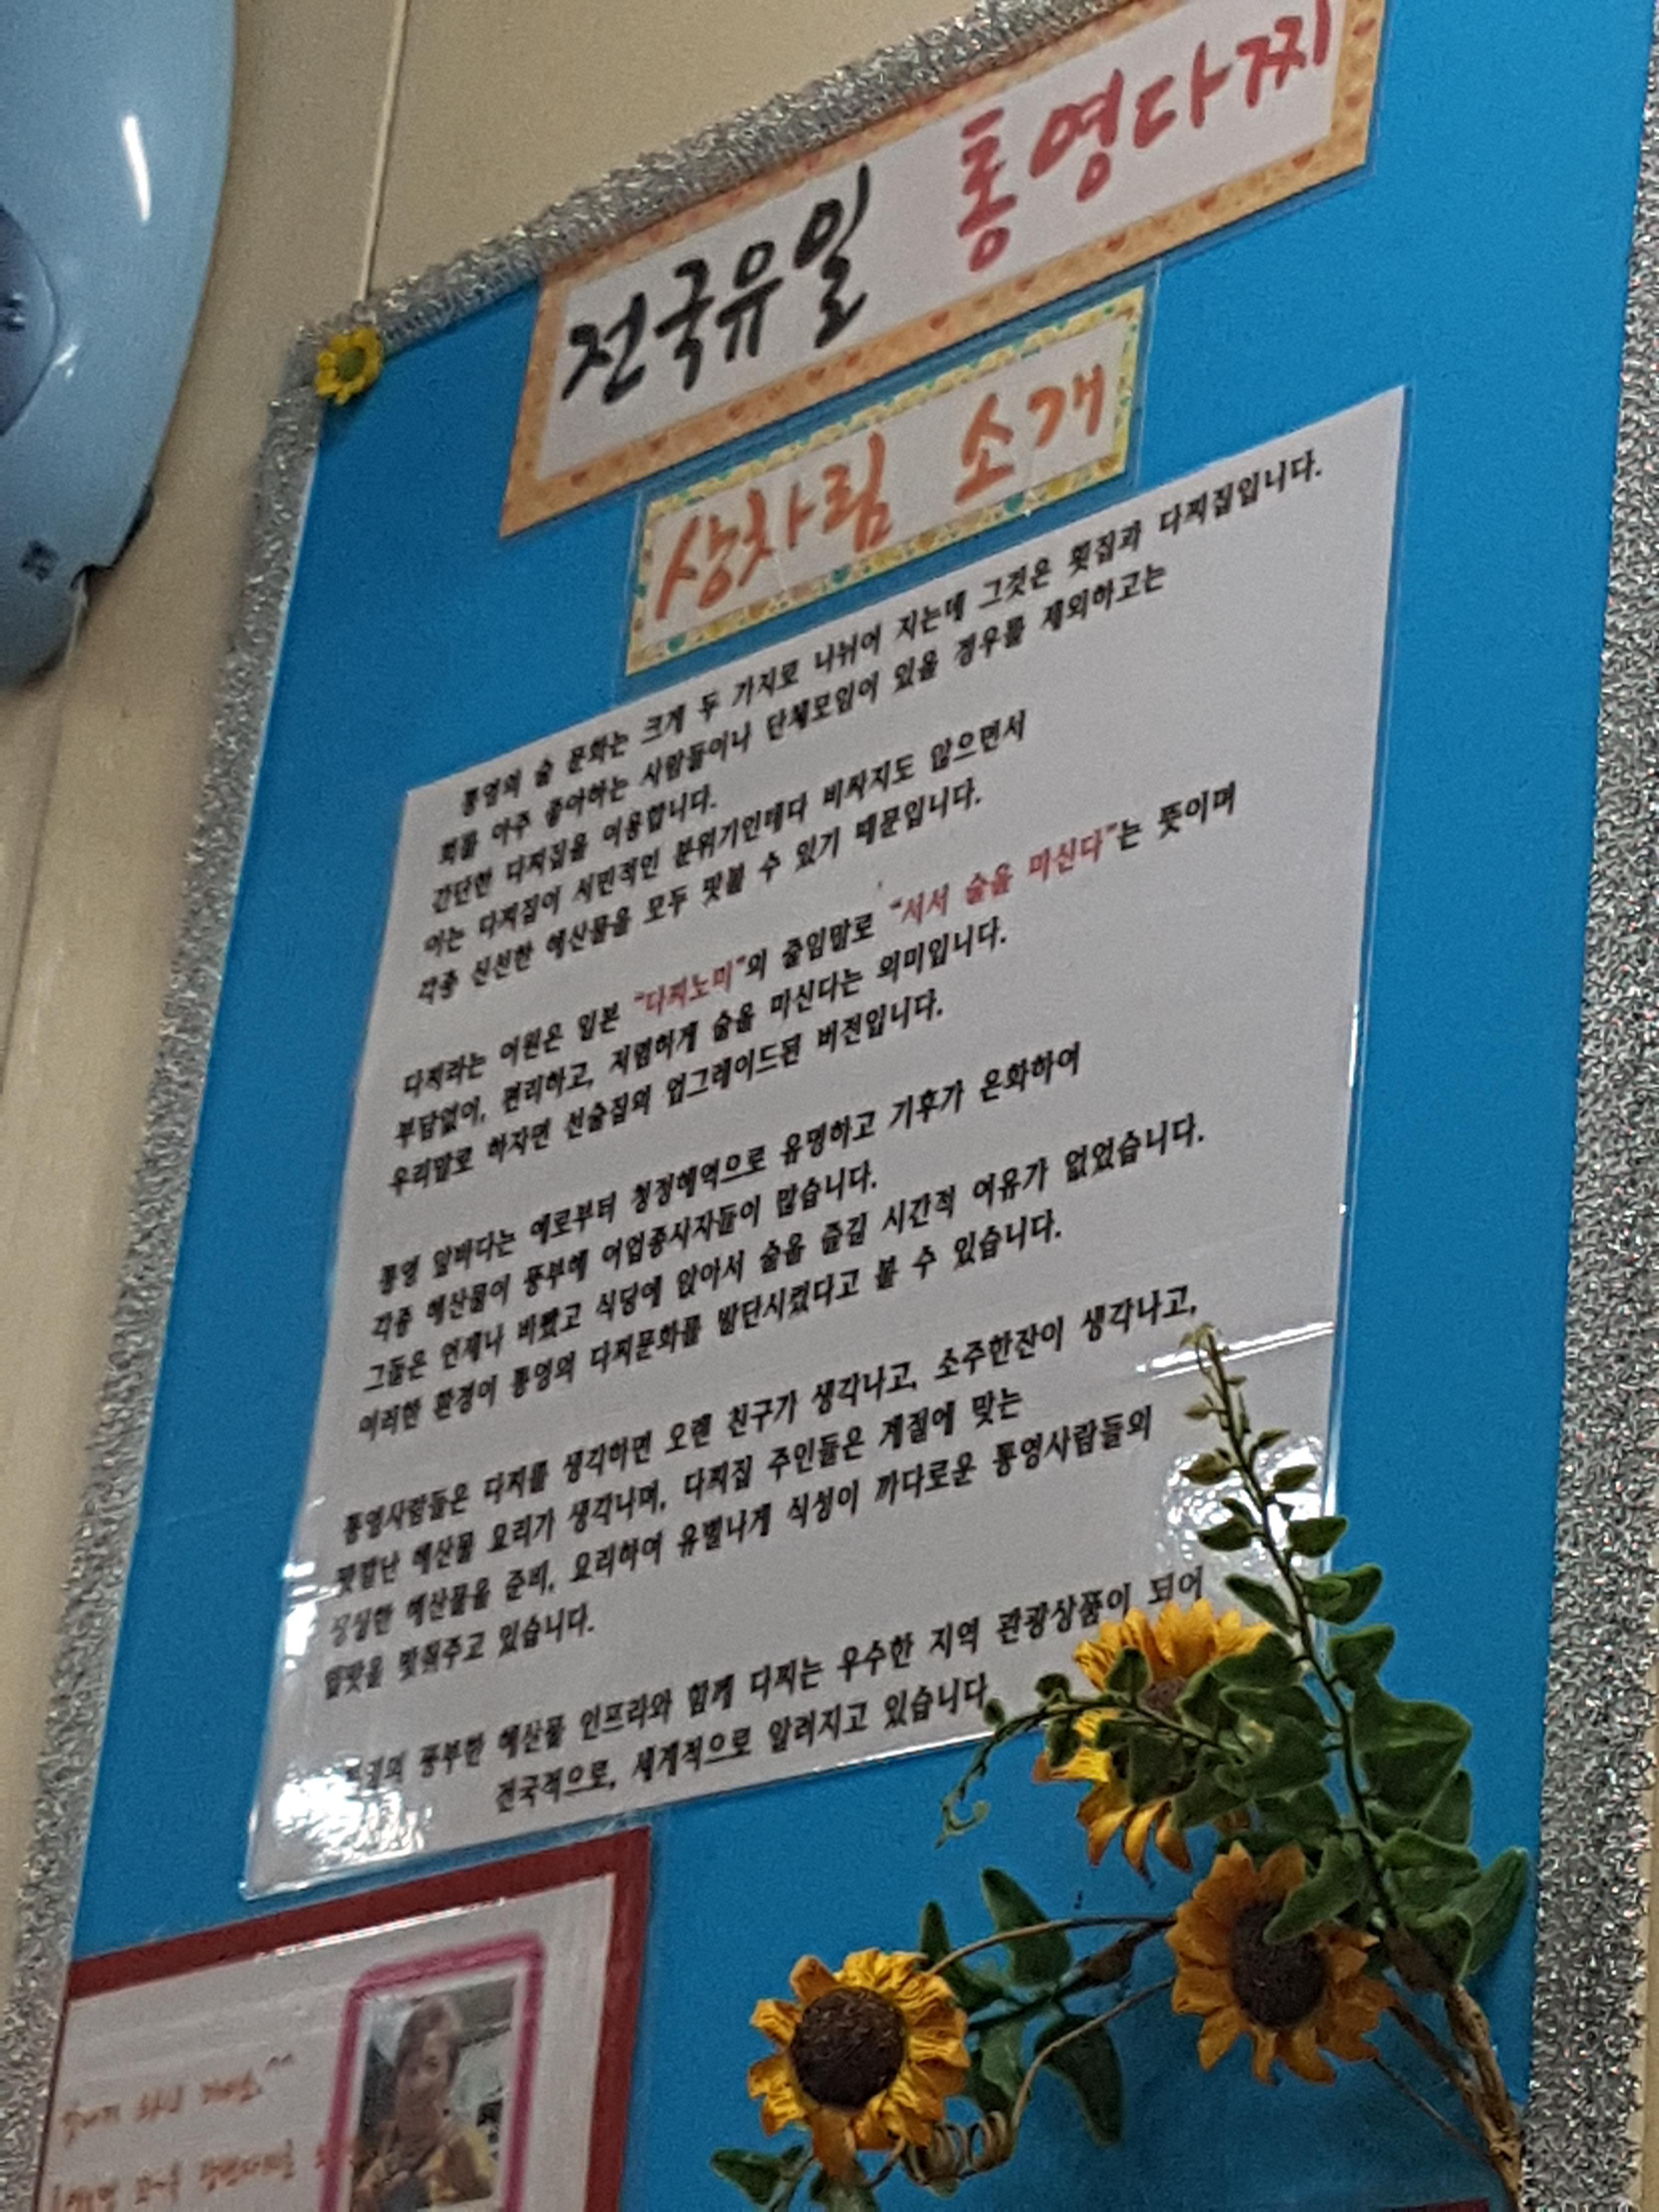 전국유일 통영다찌
상차림 소개
통영의 술 문화는 크게 두 가지로 나뉘어 지는데 그것은 횟집과 다찌집입니다.
회를 아주 좋아하는 사람들이나 단체모임이 있을 경우를 제외하고는
간단한 다찌집을 이용합니다.
이는 다찌집이 서민적인 분위기인데다 비싸지도 않으면서
각종 신선한 해산물을 모두 맛볼 수 있기 때문입니다.
다찌라는 어원은 일본 "다찌노미"의 줄임말로 "서서 술을 마신다"는 뜻이며
부담없이, 편리하고, 저렴하게 술을 마신다는 의미입니다.
우리말로 하자면 선술집의 업그레이드된 버전입니다.
통영 앞바다는 예로부터 청정해역으로 유명하고 기후가 온화하여
각종 해산물이 풍부해 어업종사자들이 많습니다.
그들은 언제나 바빴고 식당에 앉아서 술을 즐길 시간적 여유가 없었습니다.
이러한 환경이 통영의 다찌문화를 발단시켰다고 볼 수 있습니다.
통영사람들은 다찌를 생각하면 오랜 친구가 생각나고, 소주한잔이 생각나고,
맛깔난 해산물 요리가 생각나며, 다찌집 주인들은 계절에 맞는
싱싱한 해산물을 준비, 요리하여 유별나게 식성이 까다로운 통영사람들의
입맛을 맞춰주고 있습니다.
풍부한 해산물 인프라와 함께 다찌는 우수한 지역 관광상품이 되어
전국적으로, 세계적으로 알려지고 있습니다